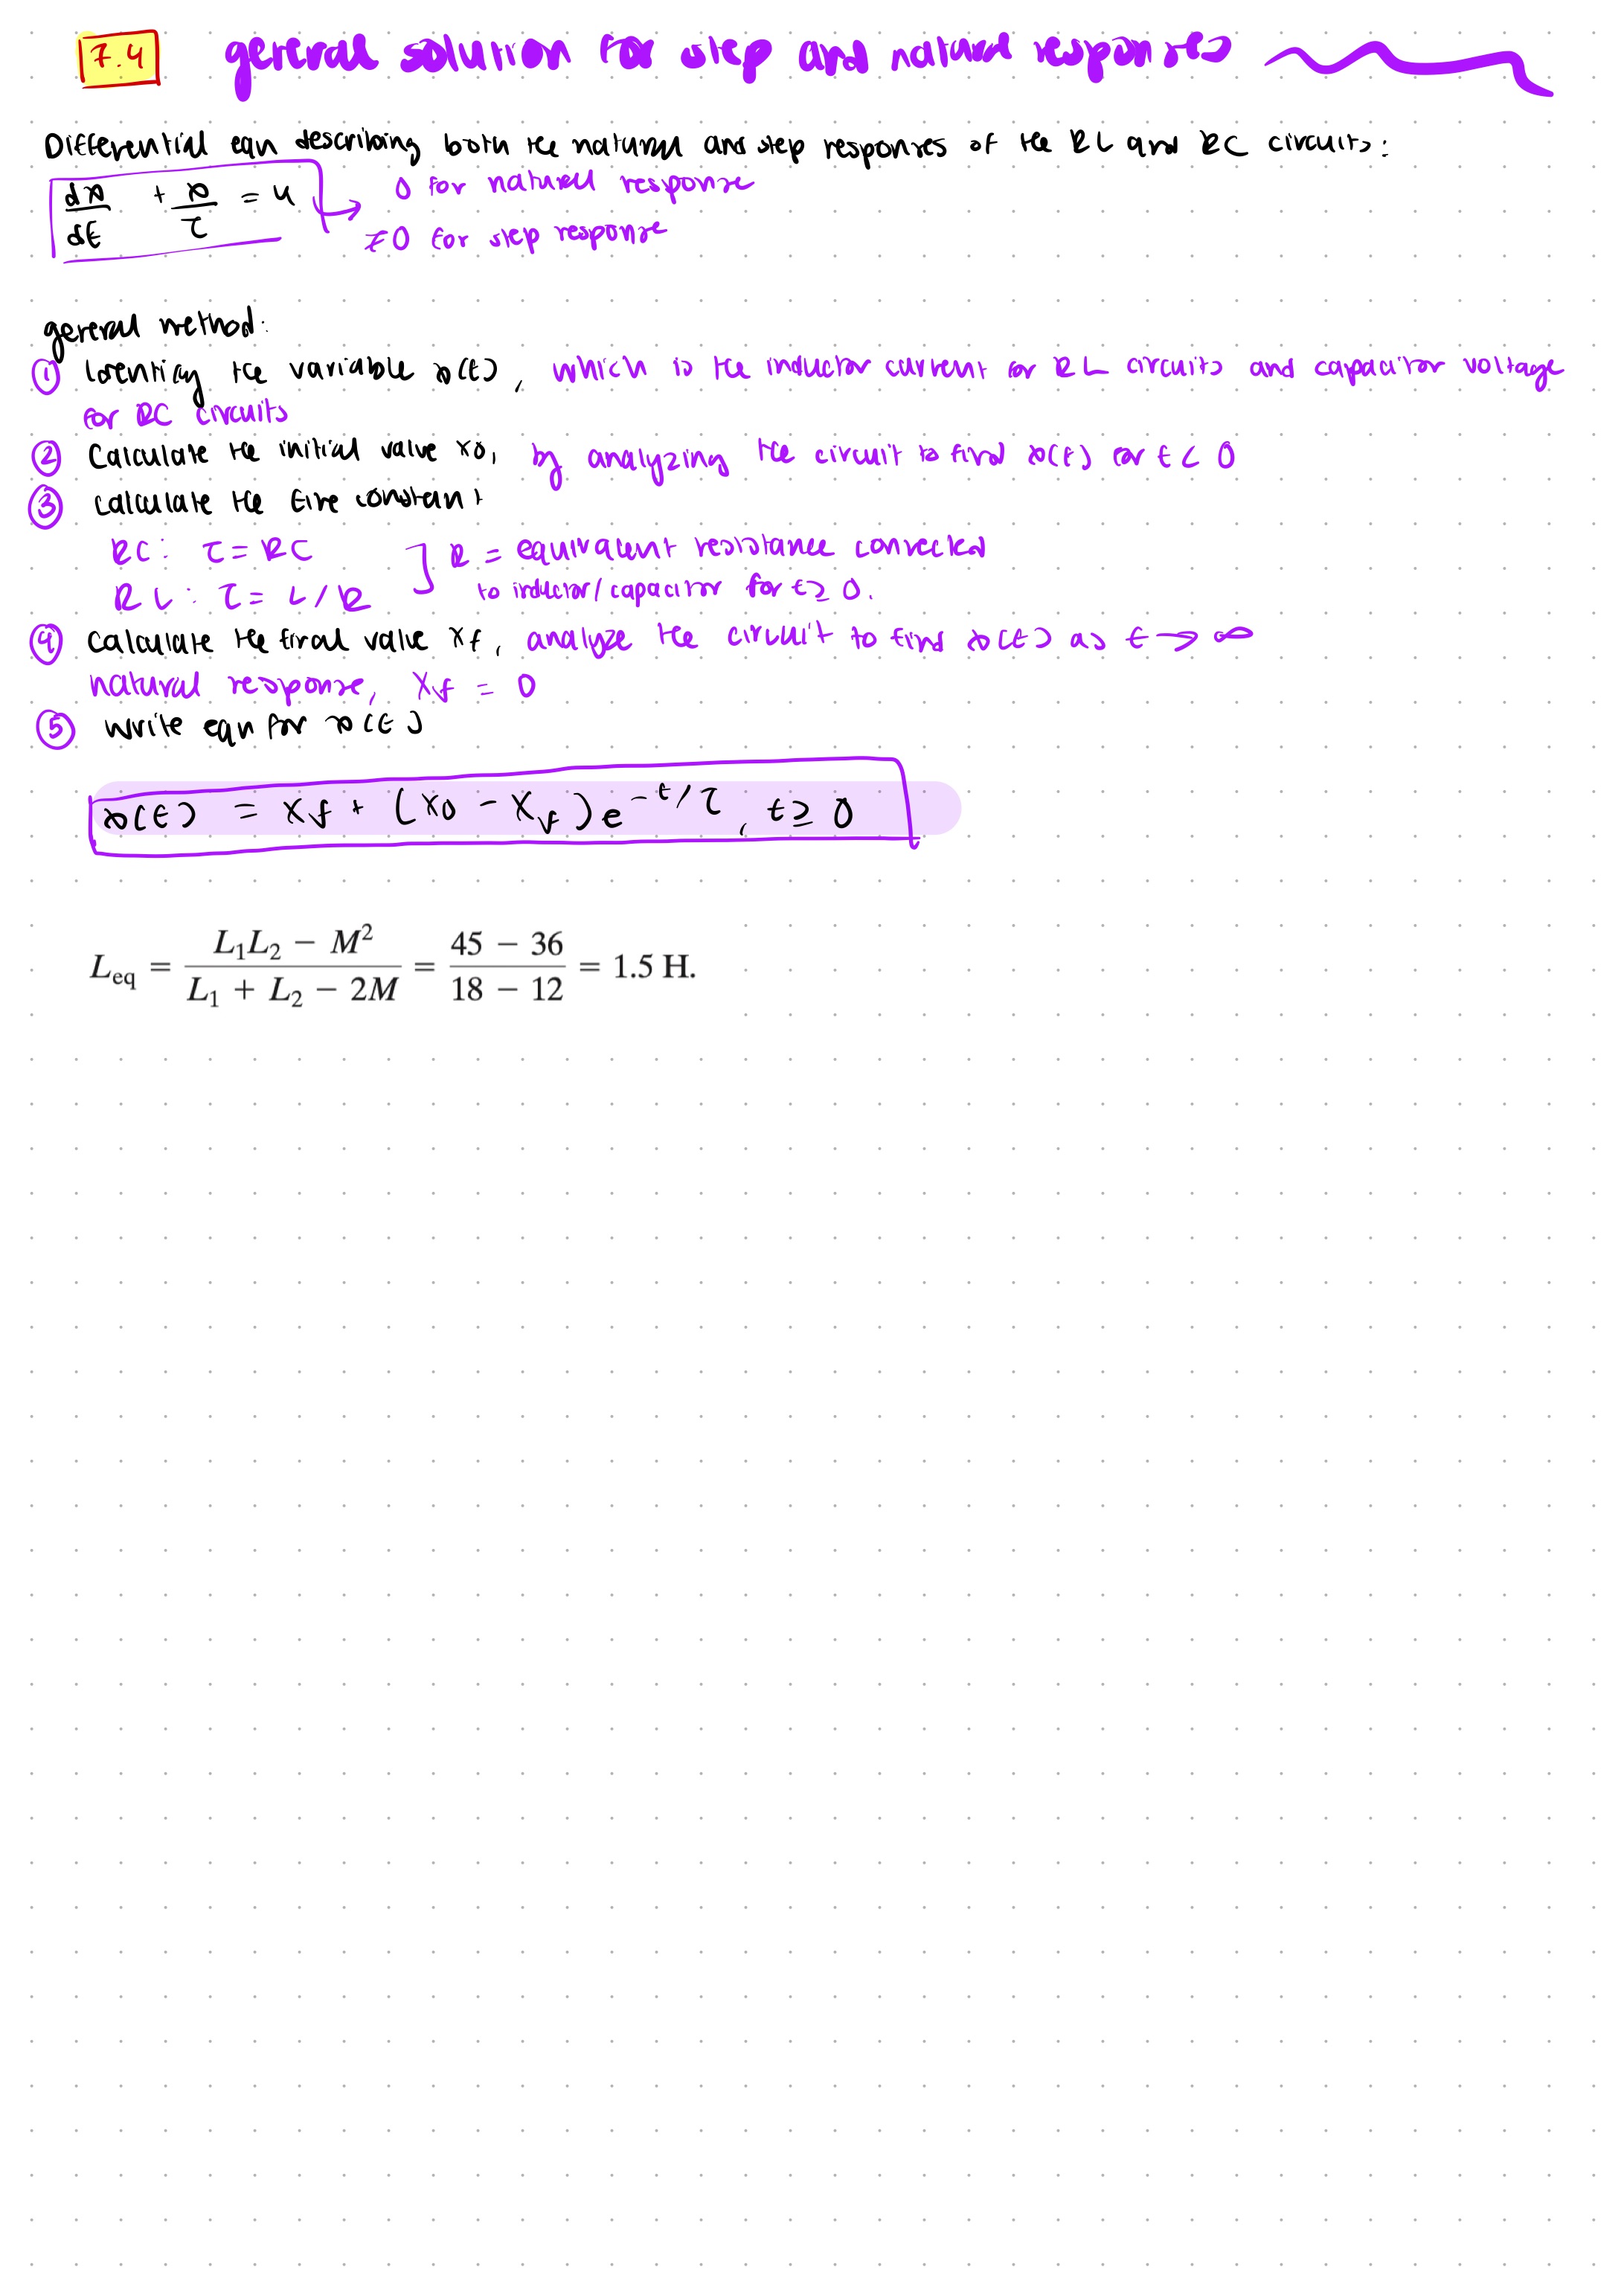 7.4 general solution for step and natural responses
Differential eqn describing both the natural and step responses of the RL and RC circuits:
dx/dt + x/τ = u → 0 for natural response
≠0 for step response
general method:
① Identify the variable x(t), which is the inductor current for RL circuits and capacitor voltage
for RC circuits
② Calculate the initial value x0, by analyzing the circuit to find x(t) for t < 0
③ calculate the time constant
RC: τ = RC ] R = equivalent resistance connected
RL: τ = L/R to inductor/capacitor for t ≥ 0.
④ Calculate the final value xf, analyze the circuit to find x(t) as t → ∞
natural response, xf = 0
⑤ write eqn for x(t)
x(t) = xf + (x0 - xf)e^-t/τ, t ≥ 0
Leq = (L1L2 − M²)/(L1 + L2 − 2M) = (45 − 36)/(18 − 12) = 1.5 H.